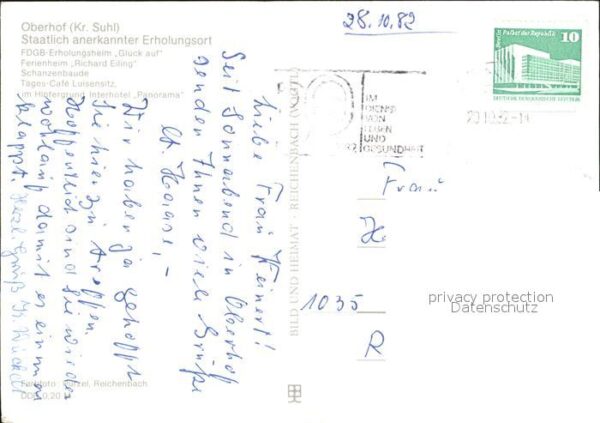 Oberhof (Kr. Suhl)
Staatlich anerkannter Erholungsort
FDGB-Erholungsheim „Glück auf"
Ferienheim „Richard Eiling"
Schanzenbaude
Tages-Café Luisensitz,
im Hintergrund Interhotel „Panorama"
28.10.82
Berlin, Palast der Republik
10
DEUTSCHE DEMOKRATISCHE REPUBLIK
IM
DIENST
VON
LEBEN
UND
GESUNDHEIT
Liebe Frau Keinert!
Seit Sonnabend in Oberhof
senden Ihnen viele Grüße
Haase, –
Wir haben ja gehofft
Sie hier zu treffen.
Hoffentlich sind Sie wieder
wohlauf damit es einmal
klappt. Herzl. Gruß
BILD UND HEIMAT · REICHENBACH (VOGTL)
Frau
H
1035
R
privacy protection
Datenschutz
Farbfoto: Reichenbach
DDR 0,20